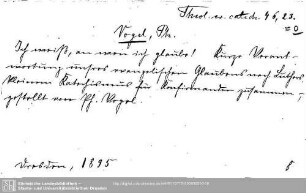 Theol. ev. catech. 46, 23.
= 0
Vogel, Ph.
Ich weiß, an wen ich glaube! Kurze Verant-
wortung unsers evangelischen Glaubens nach Luthers
Kleinem Katechismus für Konfirmanden zusammen-
gestellt von Ph. Vogel.
Dresden, 1895
8
Sächsische Landesbibliothek -
Staats- und Universitätsbibliothek Dresden